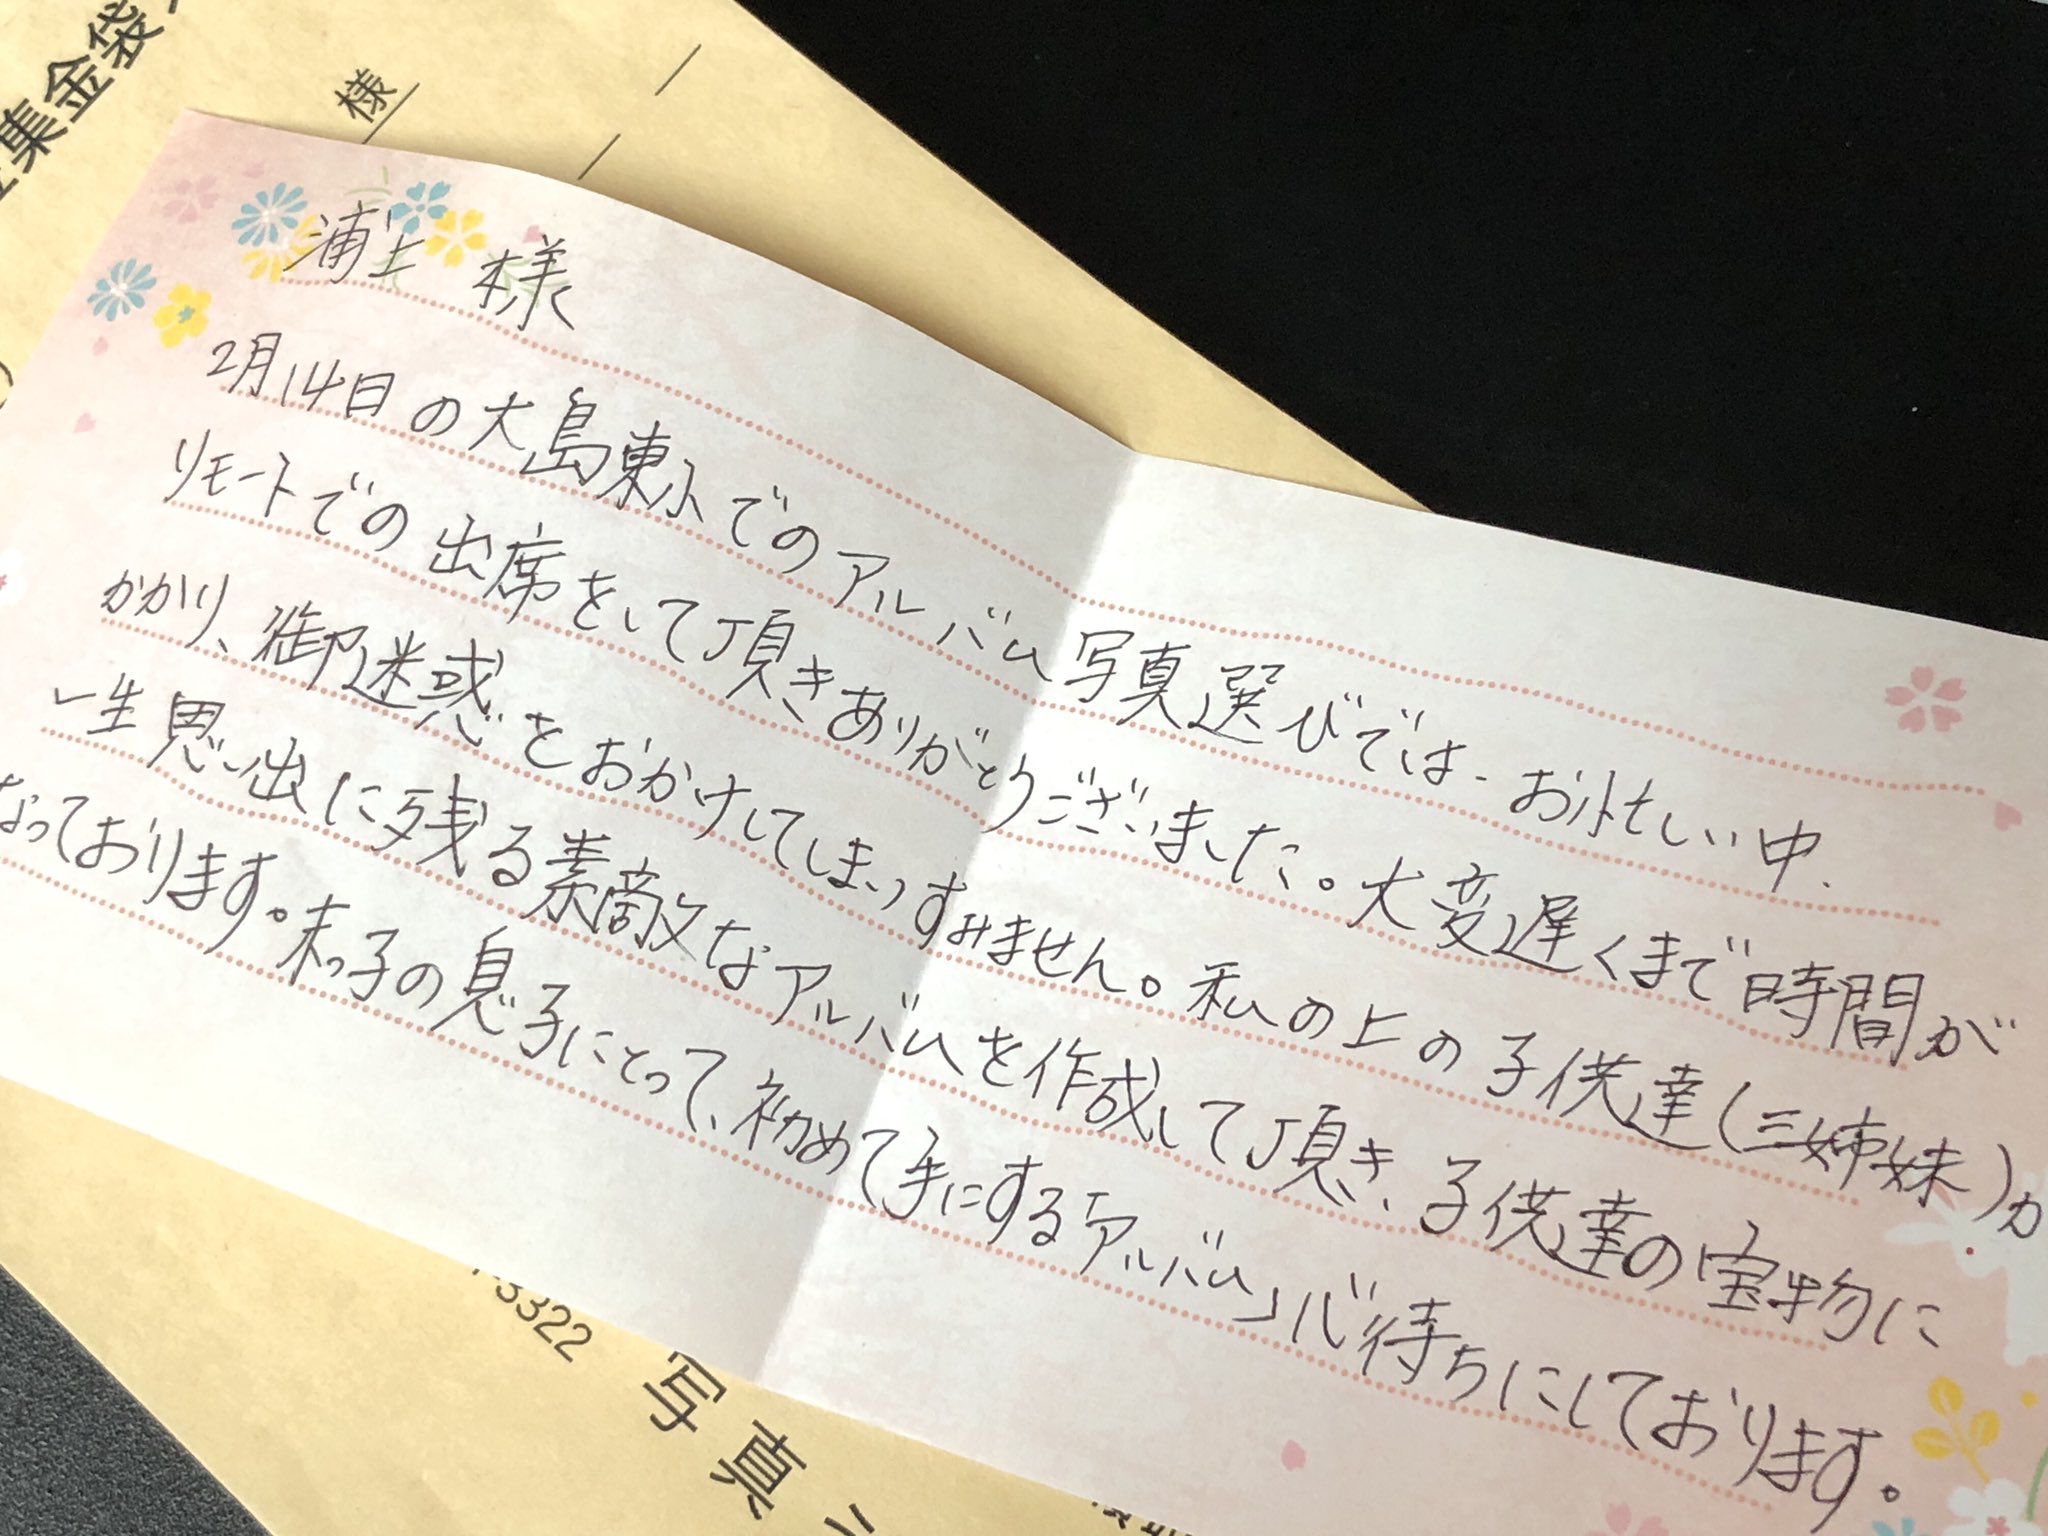 集金袋
様
浦上 様
2月14日の大島東小でのアルバム写真選びでは、お忙しい中、
リモートでの出席をして頂きありがとうございました。大変遅くまで時間が
かかり、御迷惑をおかけしてしまいすみません。私の上の子供達(三姉妹)が
一生思い出に残る素敵なアルバムを作成して頂き、子供達の宝物に
なっております。末っ子の息子にとって、初めて手にする「アルバム」心待ちにしております。
3322
写真